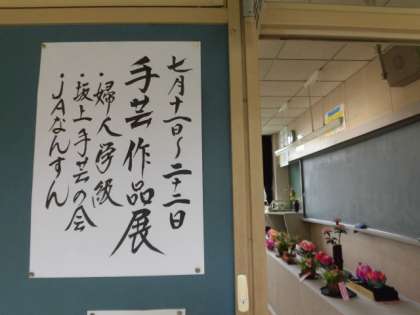 七月十一日〜二十二日
手芸作品展
・婦人学級
・坂上手芸の会
・JAなんすん